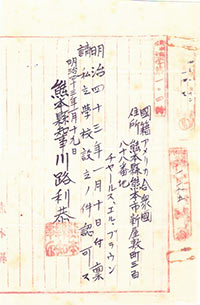 國籍アメリカ合衆國
住所熊本縣熊本市新屋敷町三百
八十八番地
チャールス、エル、ブラウン
明治四十三年一月十日付稟
請私立學校設立ノ件認可ス
明治四十三年一月十九日
熊本縣知事川路利恭